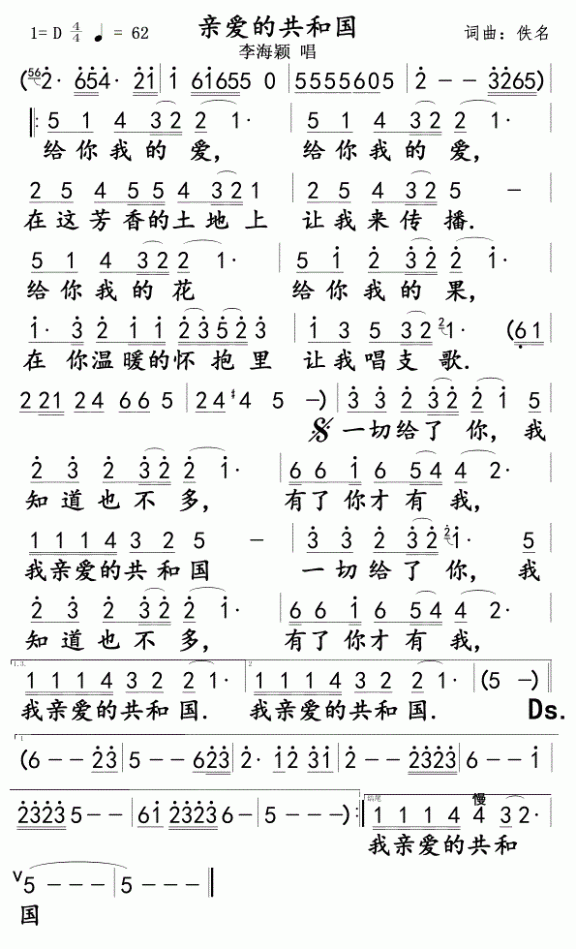 亲爱的共和国
1= D 4/4 ♩ = 62
词曲：佚名
李海颖 唱
(56 2· 654· 21 | 1 61655 0 | 5555 5605 | 2 - - 3265)
5 1 4 32 2 1· | 5 1 4 32 2 1·
给你我的爱， 给你我的爱，
2 5 4 55 4 32 1 | 2 5 4 32 5 -
在这芳香的土地上 让我来传播.
5 1 4 32 2 1· | 5 1 2 32 2 1·
给你我的花 给你我的果，
1· 3 2 1 1 2352 3 | 1 3 5 32 2 1· (61
在 你温暖的怀抱里 让我唱支歌.
2 21 24 66 5 | 24 #4 5 -) | 3 3 2 32 2 1 5
一切给了 你，我
2 3 2 32 2 1· | 6 6 1 6 54 4 2·
知道也不多， 有了你才有我，
1 1 1 4 3 2 5 - | 3 3 2 32 2 1· 5
我亲爱的共和国 一切给了你，我
2 3 2 32 2 1· | 6 6 1 6 54 4 2·
知道也不多， 有了你才有我，
1.3.
2
1 1 1 4 3 2 2 1· | 1 1 1 4 3 2 2 1· | (5 -)
我亲爱的共和国. 我亲爱的共和国. Ds.
1
(6 - - 23 | 5 - - 623 | 2· 12 31 | 2 - - 2323 | 6 - - 1
慢
2323 5 - - | 61 2323 6 - | 5 - - -) :| 1 1 1 4 4 3 2·
我亲爱的共和
∨5 - - - | 5 - - - ||
国